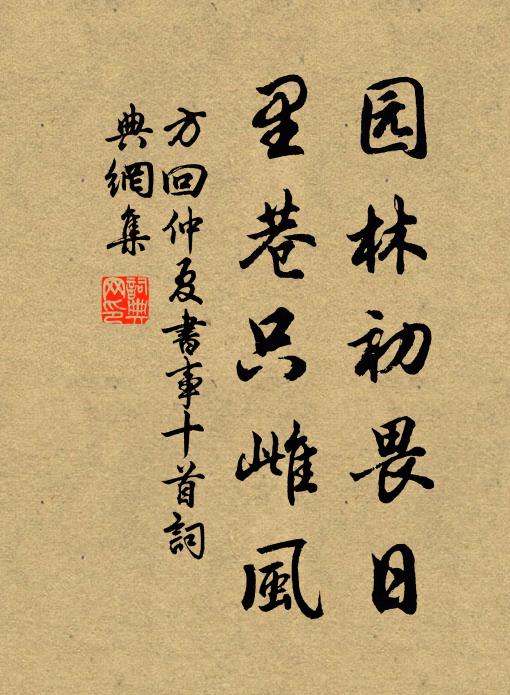 园林初畏日
里巷只雌風
方回仲夏書事十首詞
典網集
詞典
网印